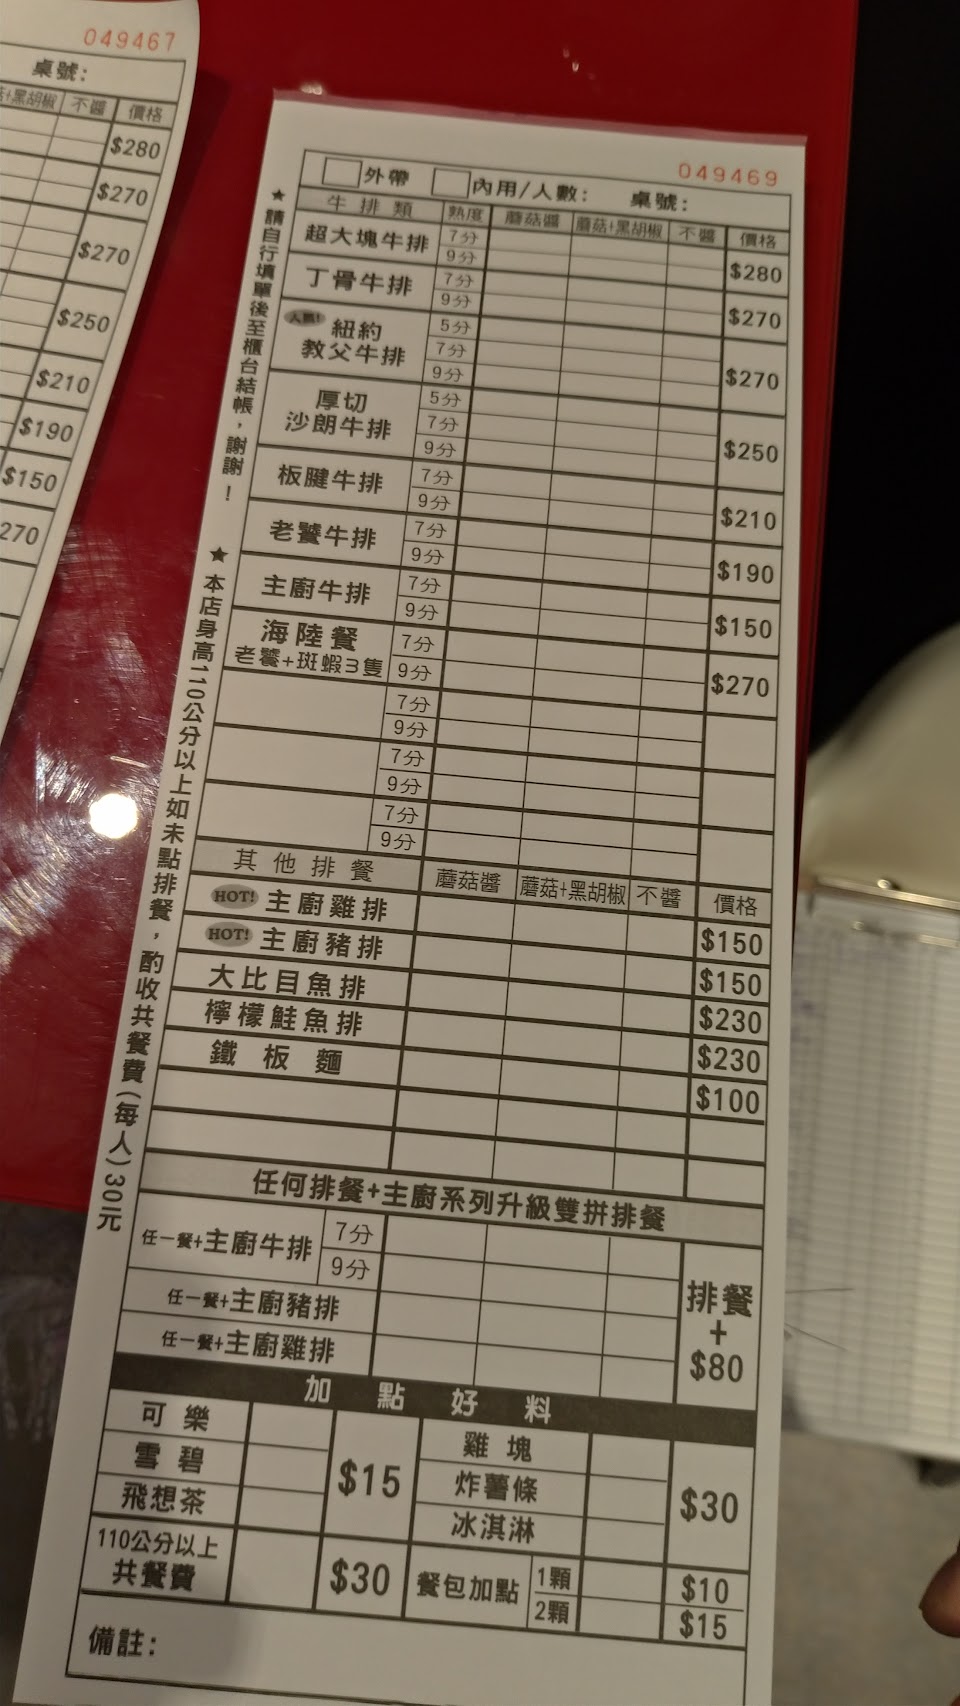 049467
桌號:
菇+黑胡椒 不醬 價格
$280
$270
$270
$250
$210
$190
$150
270
049469
外帶 內用/人數: 桌號:
牛排類 熟度 蘑菇醬 蘑菇+黑胡椒 不醬 價格
超大塊牛排 7分 9分 $280
丁骨牛排 7分 9分 $270
人氣!
紐約
教父牛排 5分 7分 9分 $270
厚切
沙朗牛排 5分 7分 9分 $250
板腱牛排 7分 9分 $210
老饕牛排 7分 9分 $190
主廚牛排 7分 9分 $150
海陸餐
老饕+斑蝦3隻 7分 9分 $270
7分
9分
7分
9分
7分
9分
其他排餐 蘑菇醬 蘑菇+黑胡椒 不醬 價格
HOT! 主廚雞排 $150
HOT! 主廚豬排 $150
大比目魚排 $230
檸檬鮭魚排 $230
鐵板麵 $100
任何排餐+主廚系列升級雙拼排餐
任一餐+主廚牛排 7分 9分
任一餐+主廚豬排
任一餐+主廚雞排
排餐
+
$80
加點好料
可樂
雪碧
飛想茶
$15
雞塊
炸薯條
冰淇淋
$30
110公分以上
共餐費 $30
餐包加點 1顆 $10
2顆 $15
備註:
★請自行填單後至櫃台結帳,謝謝!
★本店身高110公分以上如未點排餐,酌收共餐費(每人)30元